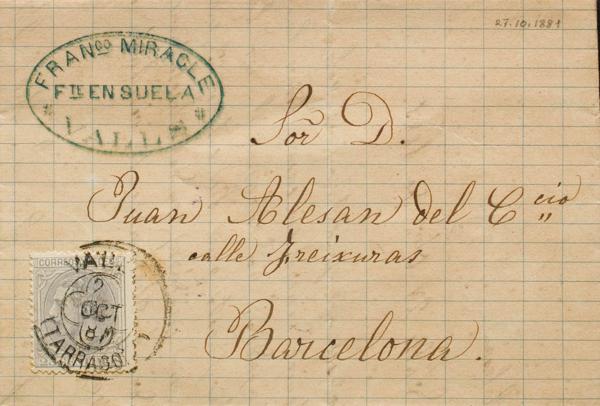 27.10.1881
FRANCO MIRACLE
FTE EN SUELA
VALLS
Sor D.
Juan Alesan del Ccio
calle Freixuras
Barcelona.
CORREOS
VALLS
2
OCT
8
(TARRAGO